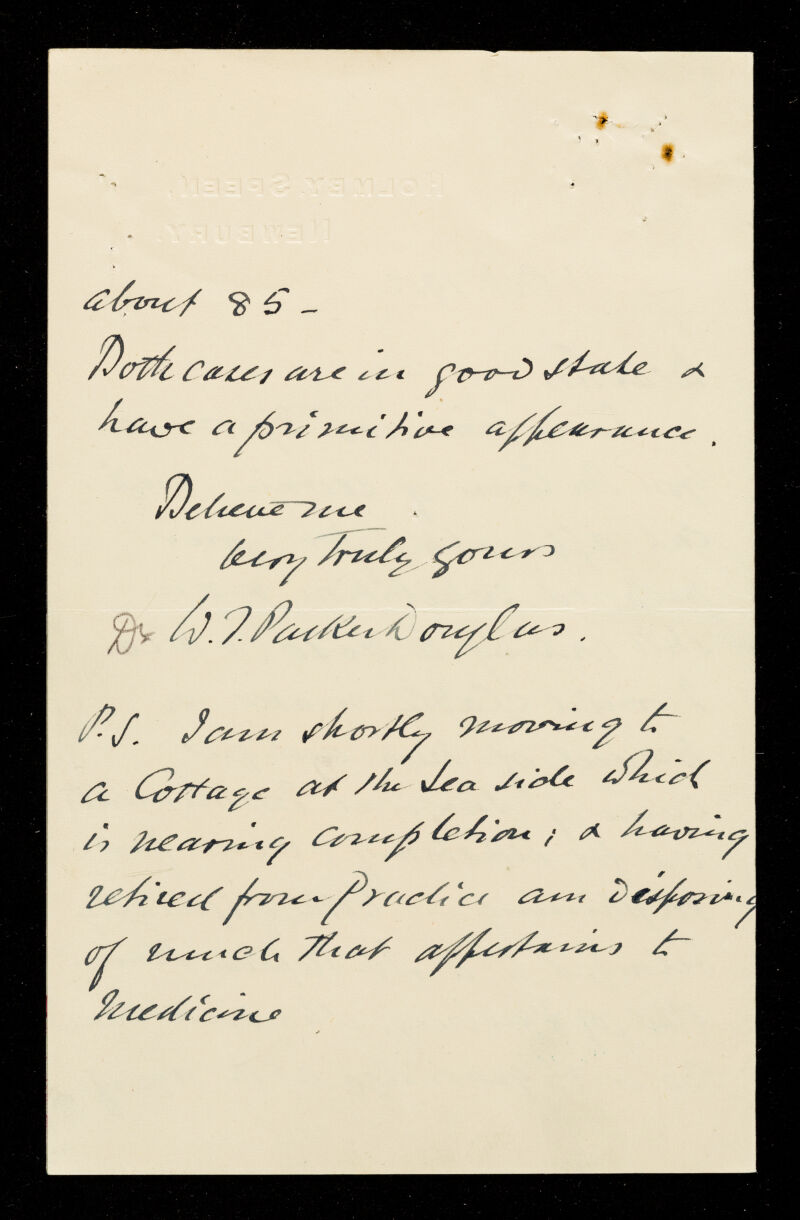 HOLMEY, SPEEN,
NEWBURY.
about 85 -
Both cases are in good state &
have a primitive appearance.
Believe me
Very Truly yours
Dr W. T. Parker Douglas.
P.S. I am shortly moving to
a Cottage at the Sea side which
is nearing completion; & having
retired from Practice am disposing
of much that appertains to
Medicine